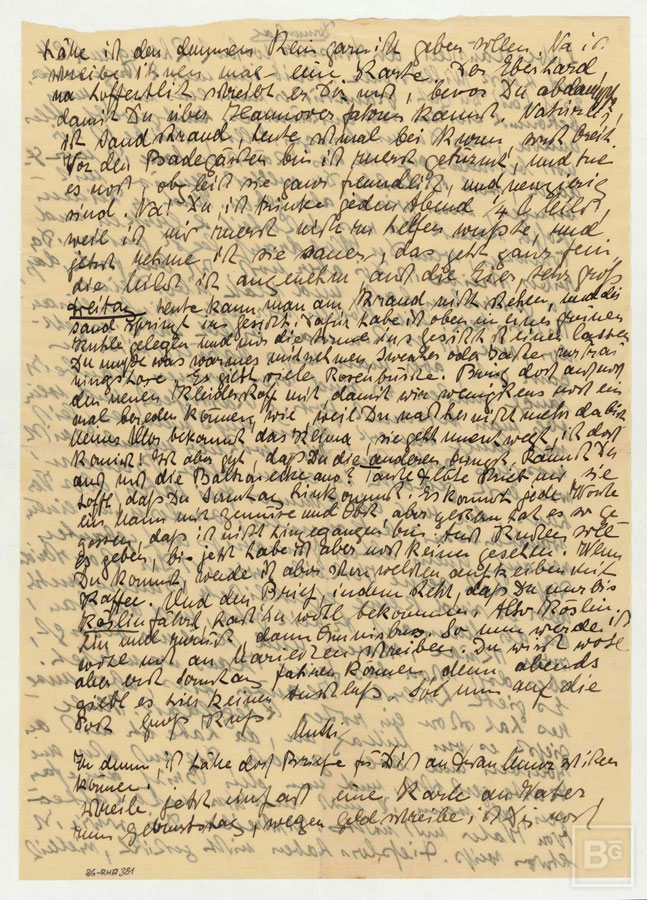 hätte ich den dummen Kein garnicht geben sollen. Na ich
schreibe ihnen mal eine Karte. Der Eberhard,
na hoffentlich schreibt er Dir mit, bevor Du abdampfst
damit Du über Hannover fahren kannst. Natürlich
ist Sandstrand, heute schmal bei Sturm, sonst breit.
Vor den Badegästen bin ich zuerst getürmt, und tue
es noch, obgleich sie ganz freundlich, und neugierig
sind. Na! Du, ich trinke jeden Abend 1/4 l Milch,
weil ich mir zuerst nicht zu helfen wußte, und
jetzt nehme ich sie sauer, das geht ganz fein,
die Milch ist angenehm und die Eier sehr groß
Freitag heute kann man am Strand nicht stehen, und der
Sand springt ins Gesicht. Dafür habe ich oben in einer grünen
Kuhle gelegen und mir die Sonne ins Gesicht scheinen lassen
Du mußt was warmes mitnehmen, Sweater oder Jacke
ningshose. Es giebt viele Rosenbüsche. Bring doch auch noch
den neuen Kleiderstoff mit, damit wir wenigstens noch ein
mal bereden können, wie, weil Du nachher nicht mehr da bist
bekommt das Kleid, sie geht zuerst weg, ist doch
komisch! Ist aber gut, daß Du die anderen bringst. Kannst Du
auch noch die aus? Tante schrieb mir sie
hofft, daß Du Sonntag hinkommst. Es kommt jede Woche
ein Mann mit Gemüse und Obst, aber gestern hat es so ge
gossen, daß ich nicht hingegangen bin. Auch Kuchen soll
es geben, bis jetzt habe ich aber noch keinen gesehen. Wenn
Du kommst, werde ich aber schon welchen auftreiben mit
Kaffee. Und den Brief, in dem steht, daß Du nur bis
Köslin fährst, hast Du wohl bekommen. Also Köslin.
hin und zurück, dann Omnibus. So nun werde ich
wohl noch an Mariechen schreiben. Du wirst wohl
aber erst Sonntag fahren können, denn abends
giebt es hier keinen Anschluß. Soll nun auf die
Post Gruß Kuß
Mutti
Zu dumm, ich hätte doch Briefe für Dich an Frau schicken
können.
Schreibe jetzt einfach eine Karte an Vater
zum Geburtstag, wegen Geld schreibe ich Dir noch
BG-RHA 381
BG